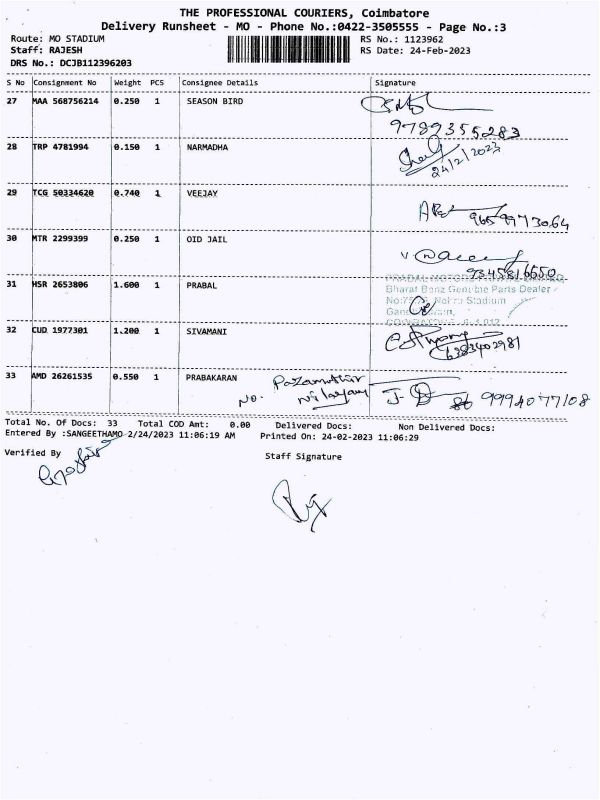 THE PROFESSIONAL COURIERS, Coimbatore
Delivery Runsheet - MO - Phone No.:0422-3505555 - Page No.:3
Route: MO STADIUM RS No.: 1123962
Staff: RAJESH RS Date: 24-Feb-2023
DRS No.: DCJB112396203
S No Consignment No Weight PCS Consignee Details Signature
27 MAA 568756214 0.250 1 SEASON BIRD
9789355283
28 TRP 4781994 0.150 1 NARMADHA
24/2/2023
29 TCG 50334620 0.740 1 VEEJAY
9659973064
30 MTR 2299399 0.250 1 OID JAIL
9345816650
31 HSR 2653806 1.600 1 PRABAL
Bharat Benz Genuine Parts Dealer
Stadium
32 CUD 1977301 1.200 1 SIVAMANI
6383402981
33 AMD 26261535 0.550 1 PRABAKARAN
No. Pazamuthir Nilayam
9994077108
Total No. Of Docs: 33 Total COD Amt: 0.00 Delivered Docs: Non Delivered Docs:
Entered By :SANGEETHAMO 2/24/2023 11:06:19 AM Printed On: 24-02-2023 11:06:29
Verified By Staff Signature